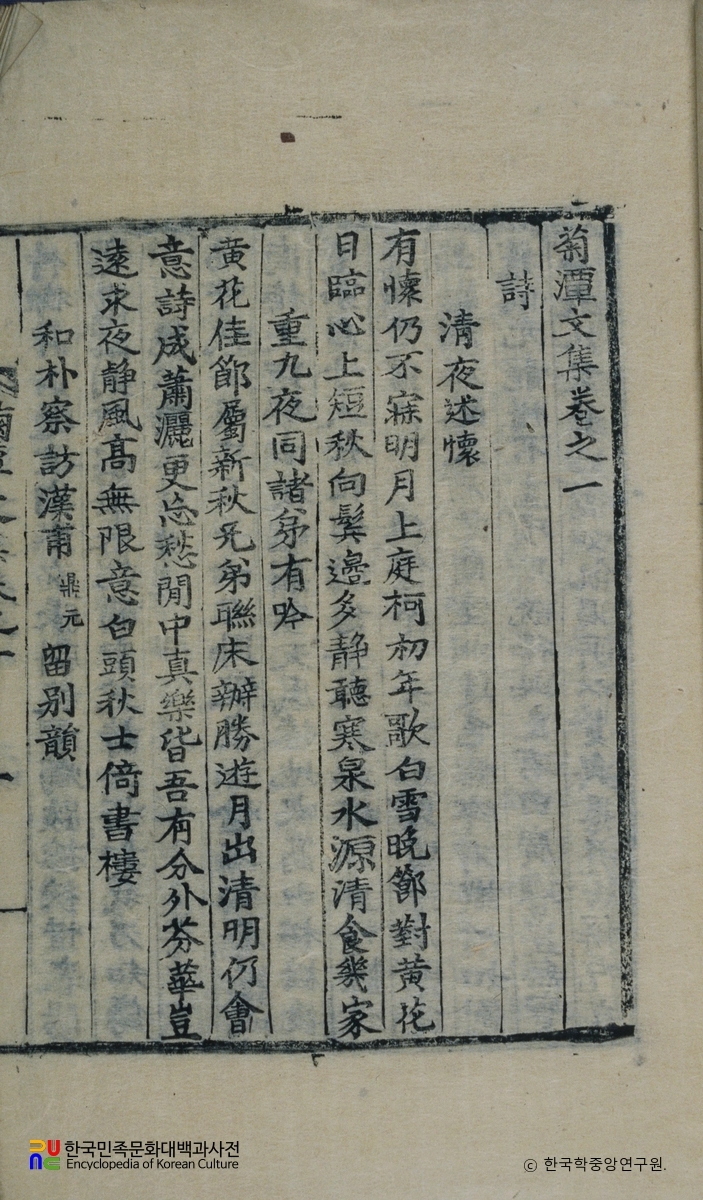 菊潭文集卷之一
詩
清夜述懷
有懷仍不寐明月上庭柯初年歌白雪晚節對黃花
日臨心上短秋向鬂邊多静聽寒泉水源清食幾家
重九夜同諸弟有吟
黃花佳節屬新秋兄弟聯床辦勝遊月出清明仍會
意詩成蕭灑更忘愁閒中真樂皆吾有分外芬華豈
遠求夜静風高無限意白頭秋士倚書樓
和朴察訪漢甫鼎元留别韻
한국민족문화대백과사전
Encyclopedia of Korean Culture
© 한국학중앙연구원.